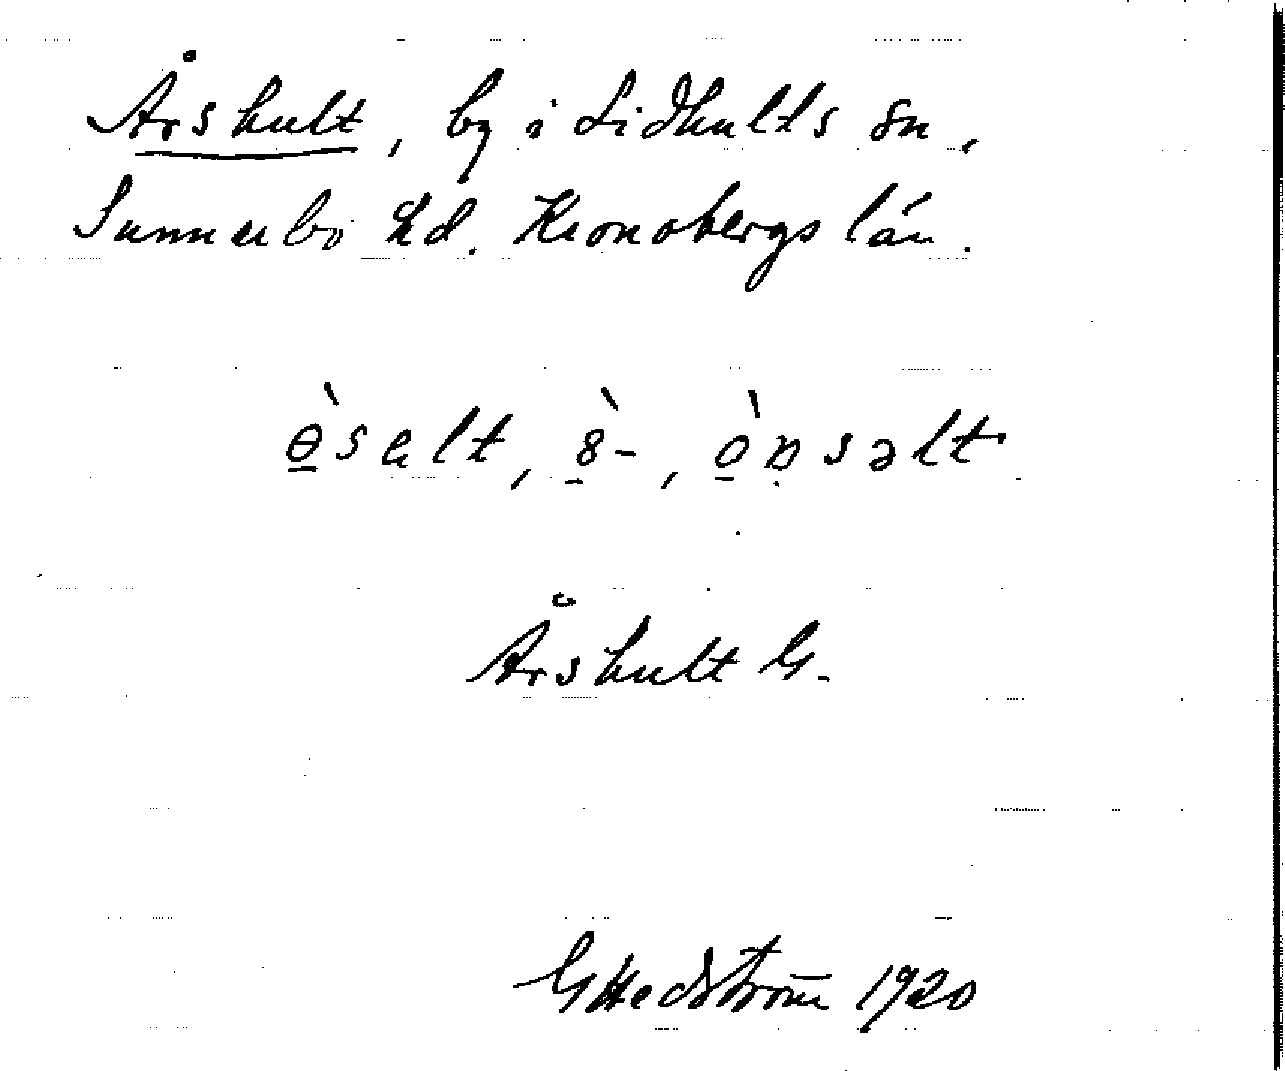 Årshult, by i Lidhults sn,
Sunnerbo hd. Kronobergs län.
ɵ̠̀salt, 8̠̀-, ò̠n̥səlt
Årshult G.
G Hedström 1920